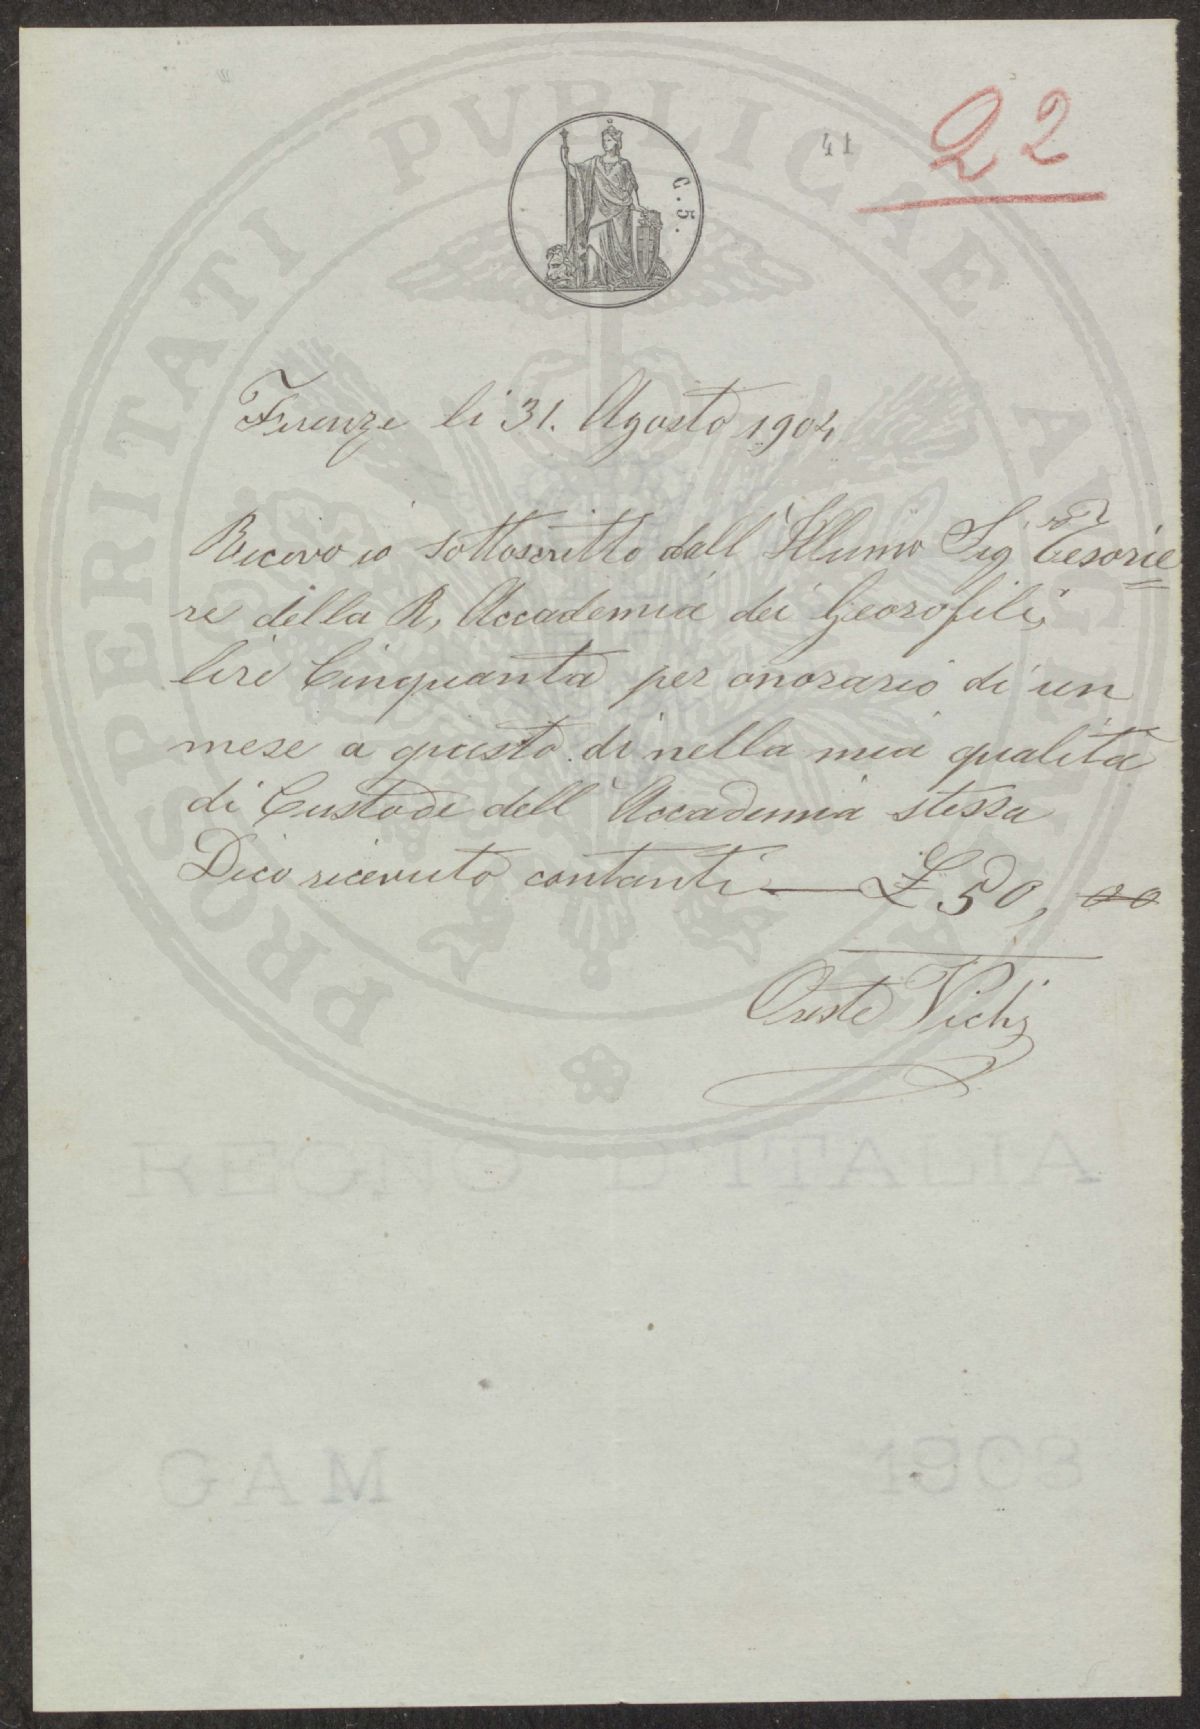 22
41
C. 5.
PROSPERITATI PVBLICAE AVGENDAE
Firenze li 31. Agosto 1904
Ricevo io sottoscritto dall' Illumo Sig re Tesorie=
re della R, Accademia dei Georofili,
lire Cinquanta per onorario di un
mese a questo dì nella mia qualità
di Custode dell' Accademia stessa
Dico ricevuto contanti — £ 50, 00
Oreste Vichi
REGNO D'ITALIA
GAM 1903